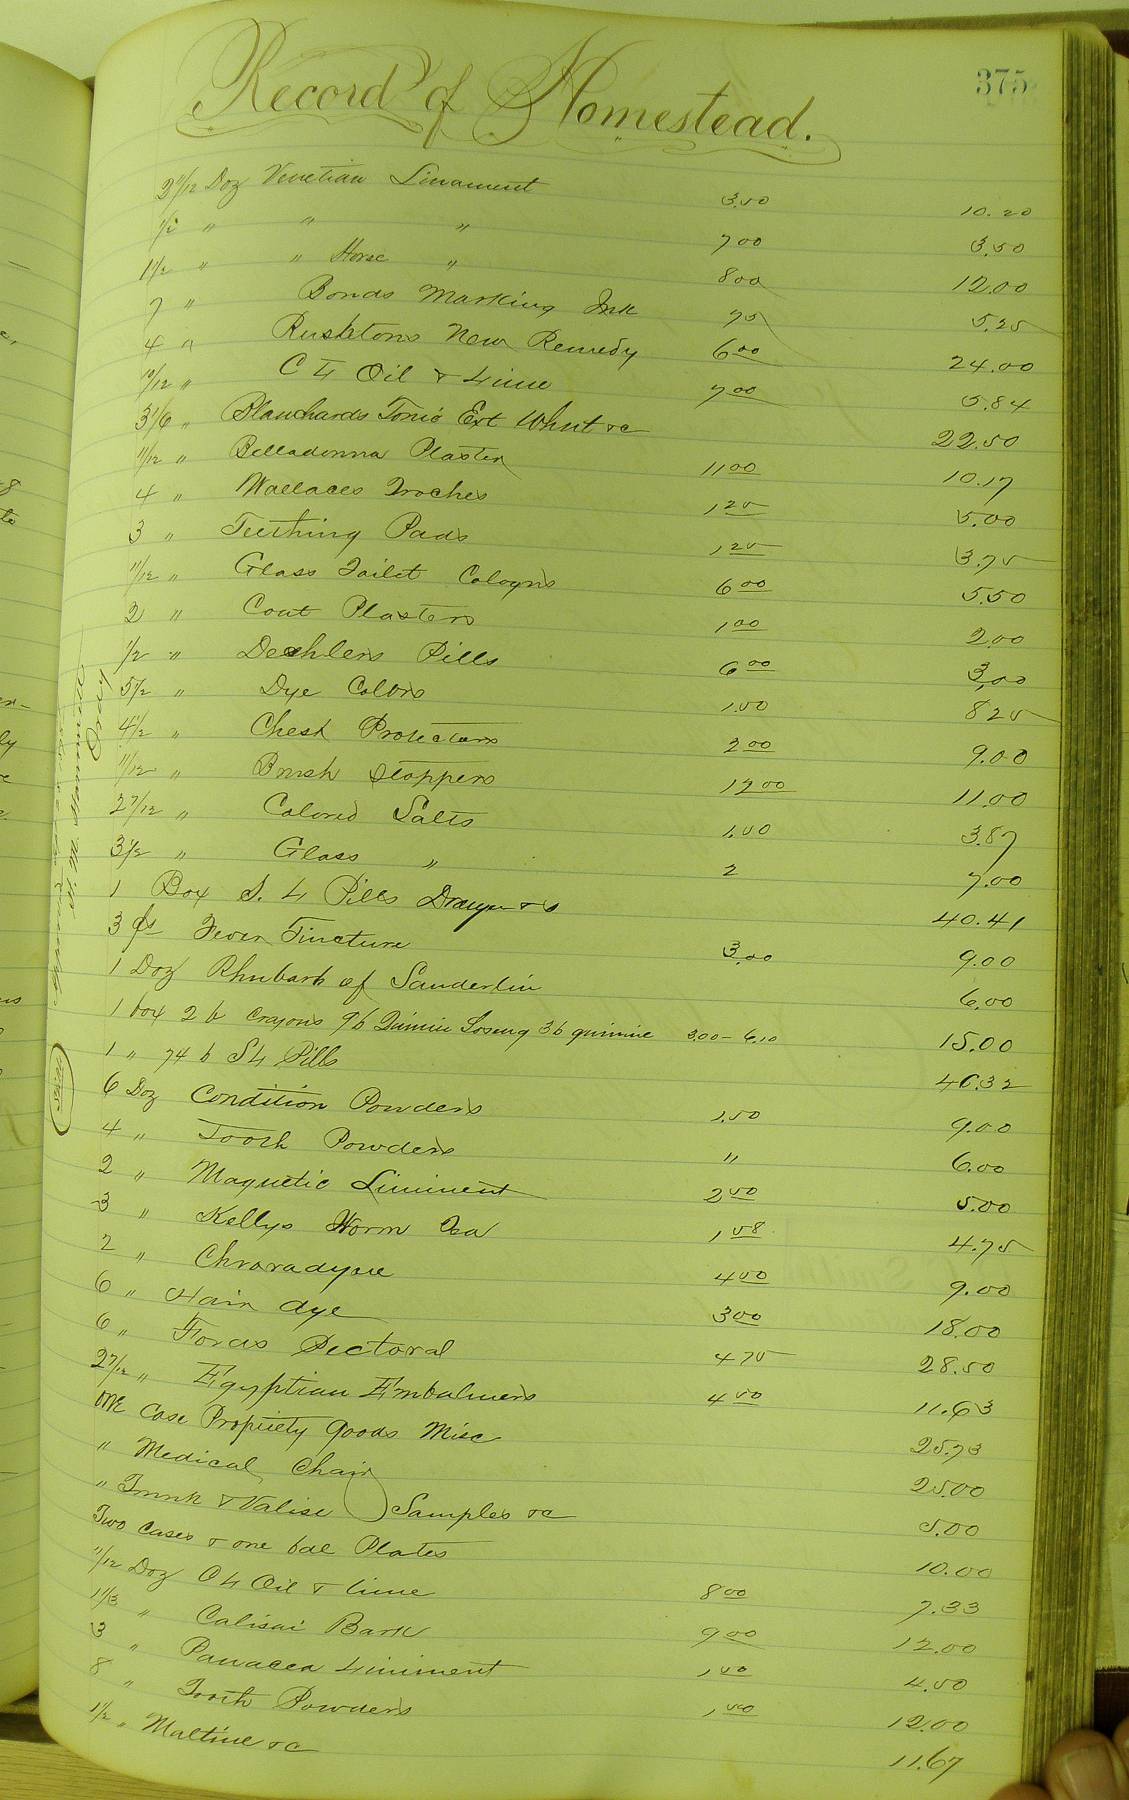 375
Record of Homestead.
2 11/12 Doz Venetian Linament 3.50 10.20
1/2 " " " 7 00 3.50
1 1/2 " " Horse " 8 00 12.00
7 " Bonds Marking Ink 75 5.25
4 " Rushtons New Remedy 6 00 24.00
10/12 " C L Oil & Lime 7 00 5.84
3 1/6 " Blanchards Tonic Ext Wheat &c 22.50
11/12 " Belladonna Plaster 11 00 10.17
4 " Wallaces Troches 1 25 5.00
3 " Teething Pads 1 25 3.75
11/12 " Glass Toilet Colognes 6 00 5.50
2 " Court Plasters 1 00 2.00
1/2 " Pills 6 00 3.00
5 1/2 " Dye Colors 1.50 8 25
4 1/2 " Chest Protectors 2 00 9.00
11/12 " Brush Stoppers 12 00 11.00
2 7/12 " Colored Salts 1.50 3.87
3 1/2 " Glass " 2 7.00
1 Box S. L Pills &c 40.41
3 Fever Tincture 3.00 9.00
1 Doz Rhubarb of Sanderlin 6.00
1 box 2 b Crayons 9 b Loseng 3 b quinine 3.00 - 6.10 15.00
1 " 74 b S L Pills 46.32
6 Doz Condition Powders 1.50 9.00
4 " Tooth Powders " 6.00
2 " Magnetic Liniment 2 50 5.00
3 " Kellys Worm Tea 1 58 4.75
2 " 4 50 9.00
6 " Hair dye 3 00 18.00
6 " Pectoral 4 75 28.50
2 7/12 " Egyptian Embalmers 4 50 11.63
one Case Propriety goods Misc 25.73
" Medical Chair 25.00
" Trunk & Valise ) Samples &c 5.00
Two Cases & one bdl Plates 10.00
11/12 Doz C L Oil & lime 8 00 7.33
1 1/3 " Calisai Bark 9 00 12.00
3 " Panacea Liniment 1 50 4.50
8 " Tooth Powders 1 50 12.00
1 1/2 " Maltine &c 11.67